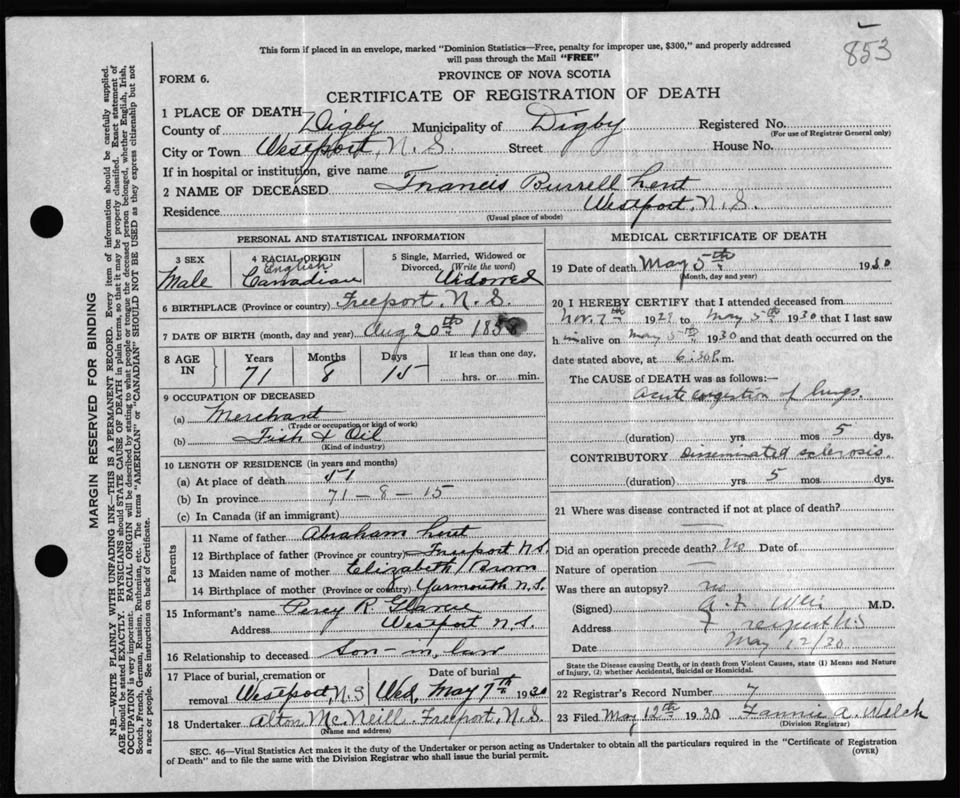 853
This form if placed in an envelope, marked "Dominion Statistics—Free, penalty for improper use, $300," and properly addressed
will pass through the Mail "FREE"
FORM 6.
PROVINCE OF NOVA SCOTIA
CERTIFICATE OF REGISTRATION OF DEATH
1 PLACE OF DEATH
County of Digby Municipality of Digby Registered No.
(For use of Registrar General only)
City or Town Westport, N.S. Street House No.
If in hospital or institution, give name
2 NAME OF DECEASED Francis Burrell Lent
Residence Westport, N.S.
(Usual place of abode)
PERSONAL AND STATISTICAL INFORMATION
3 SEX 4 RACIAL ORIGIN 5 Single, Married, Widowed or
Divorced. (Write the word)
English
Male Canadian Widowed
6 BIRTHPLACE (Province or country) Freeport, N.S.
7 DATE OF BIRTH (month, day and year) Aug 20th 1858
8 AGE IN Years Months Days If less than one day,
71 8 15 hrs. or min.
9 OCCUPATION OF DECEASED
(a) Merchant
(Trade or occupation or kind of work)
(b) Fish & Oil
(Kind of industry)
10 LENGTH OF RESIDENCE (in years and months)
(a) At place of death 51
(b) In province 71-8-15
(c) In Canada (if an immigrant)
Parents
11 Name of father Abraham Lent
12 Birthplace of father (Province or country) Freeport N.S.
13 Maiden name of mother Elizabeth Brown
14 Birthplace of mother (Province or country) Yarmouth N.S.
15 Informant's name Percy R.
Address Westport N.S.
16 Relationship to deceased Son-in-law
17 Place of burial, cremation or Date of burial
removal Westport, N.S Wed, May 7th 1930
18 Undertaker Alton McNeill Freeport, N.S.
(Name and address)
MEDICAL CERTIFICATE OF DEATH
19 Date of death May 5th 1930
(Month, day and year)
20 I HEREBY CERTIFY that I attended deceased from
Nov. 7th 1929 to May 5th 1930 that I last saw
h im alive on May 5th 1930 and that death occurred on the
date stated above, at 6.30 P.m.
The CAUSE of DEATH was as follows:—
Acute congestion of lungs.
(duration) yrs. mos 5 dys.
CONTRIBUTORY Disseminated sclerosis.
(duration) yrs. 5 mos. dys.
21 Where was disease contracted if not at place of death?
—
Did an operation precede death? No Date of
Nature of operation —
Was there an autopsy? no
(Signed) A. F. Weir M.D.
Address Freeport N.S
Date May 12/30
State the Disease causing Death, or in death from Violent Causes, state (1) Means and Nature
of Injury, (2) whether Accidental, Suicidal or Homicidal.
22 Registrar's Record Number 7
23 Filed May 12th 1930 Fannie A. Welch
(Division Registrar)
SEC. 46—Vital Statistics Act makes it the duty of the Undertaker or person acting as Undertaker to obtain all the particulars required in the "Certificate of Registration
of Death" and to file the same with the Division Registrar who shall issue the burial permit. (OVER)
MARGIN RESERVED FOR BINDING
N.B.—WRITE PLAINLY WITH UNFADING INK—THIS IS A PERMANENT RECORD. Every item of information should be carefully supplied.
AGE should be stated EXACTLY. PHYSICIANS should STATE CAUSE OF DEATH in plain terms, so that it may be properly classified. Exact statement of
OCCUPATION is very important. RACIAL ORIGIN will be described by stating to what people or tongue the deceased person belonged, whether English, Irish,
Scotch, French, German, Russian, Ruthenian, etc. The terms "AMERICAN" or "CANADIAN" SHOULD NOT BE USED as they express citizenship but not
a race or people. See instructions on back of Certificate.